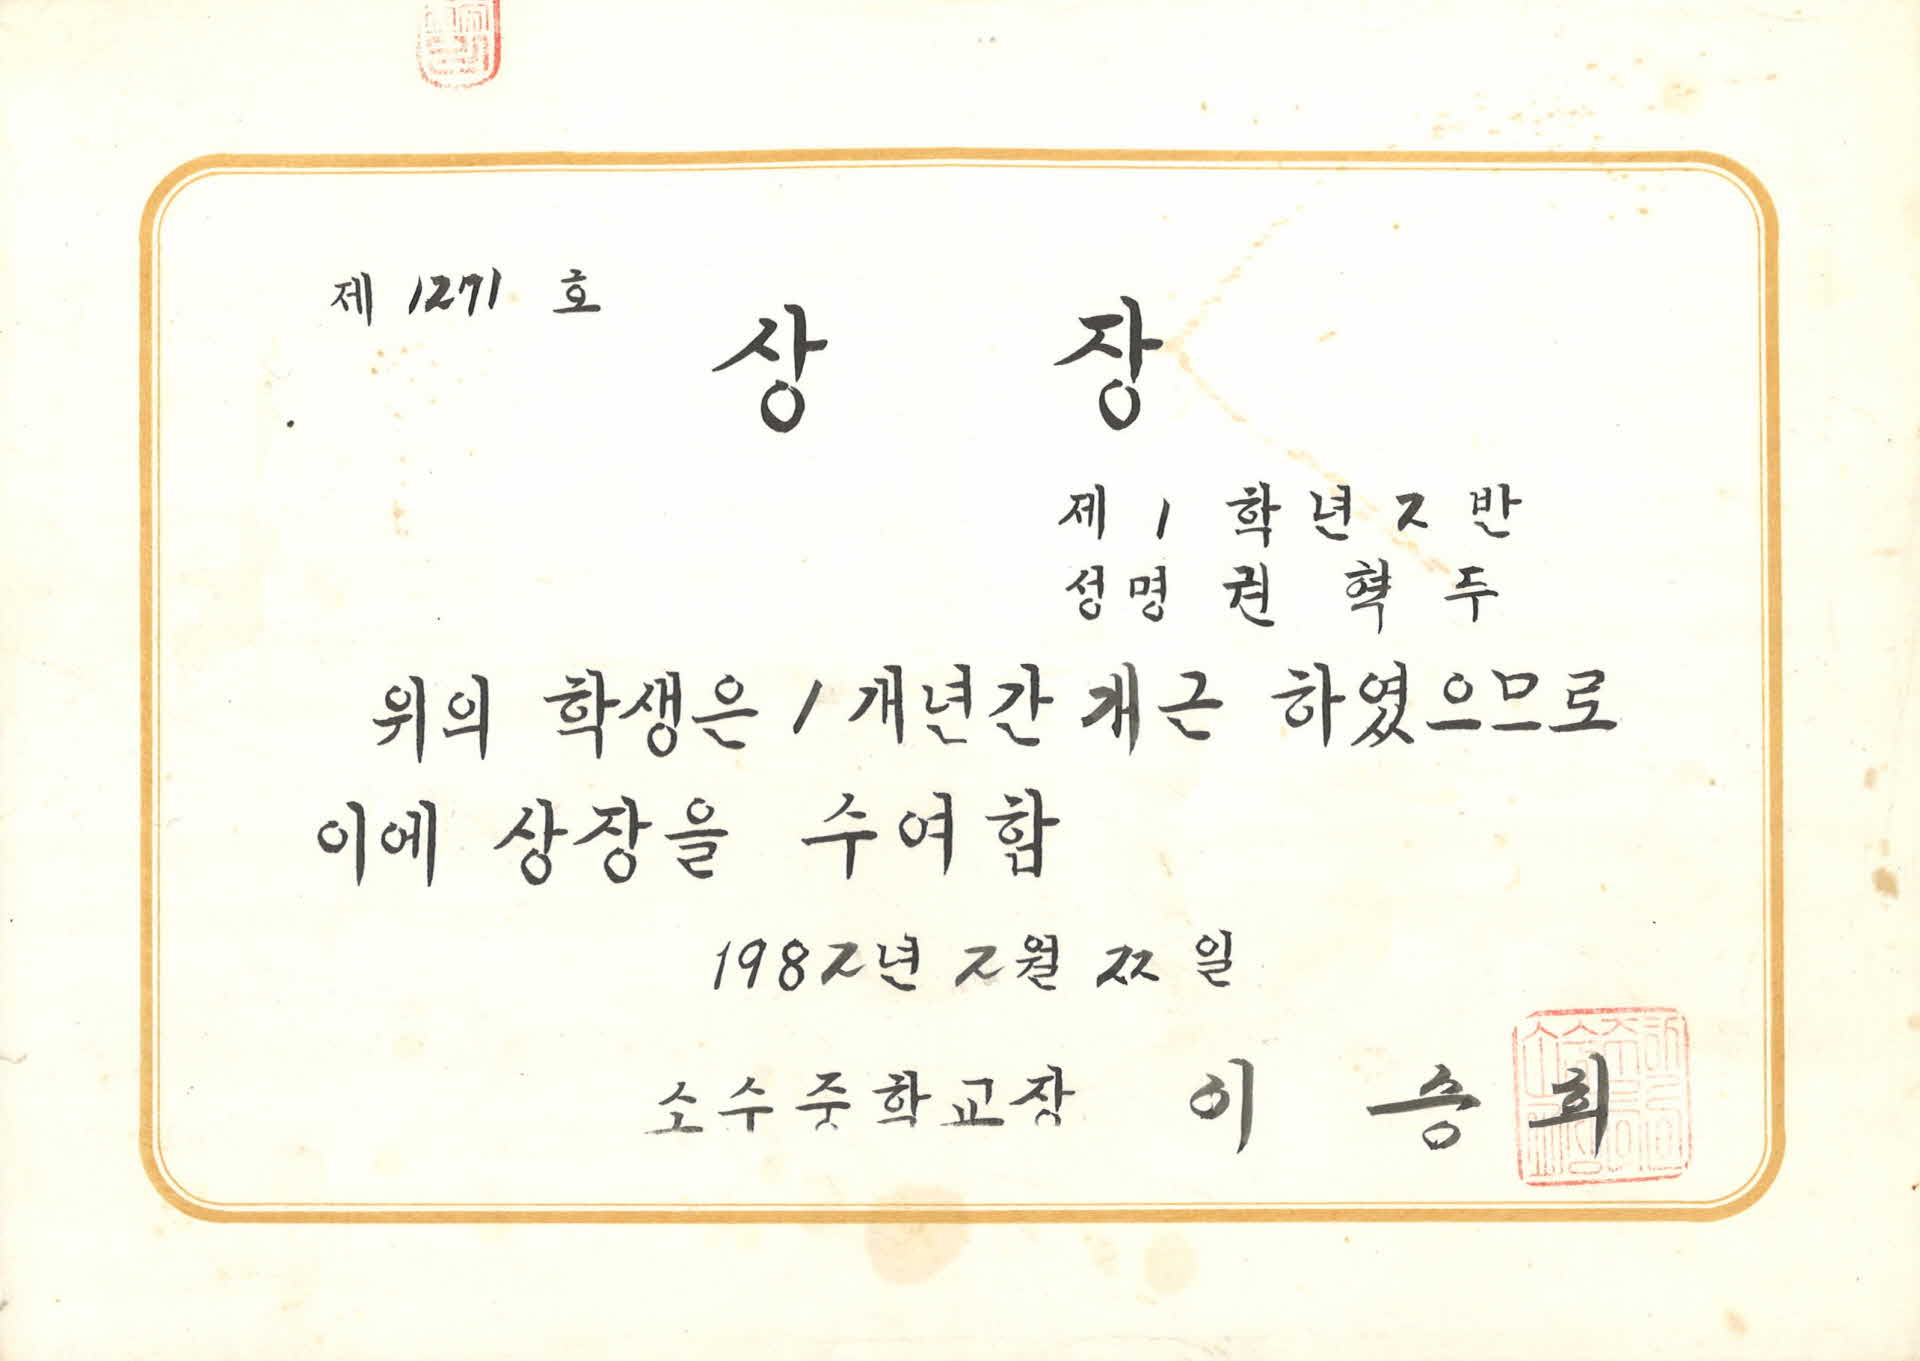 제 1271 호
상 장
제 1 학년 2 반
성명 권 혁 두
위의 학생은 1 개년간 개근 하였으므로
이에 상장을 수여함
1982년 2월 22 일
소수중학교장 이 승 희